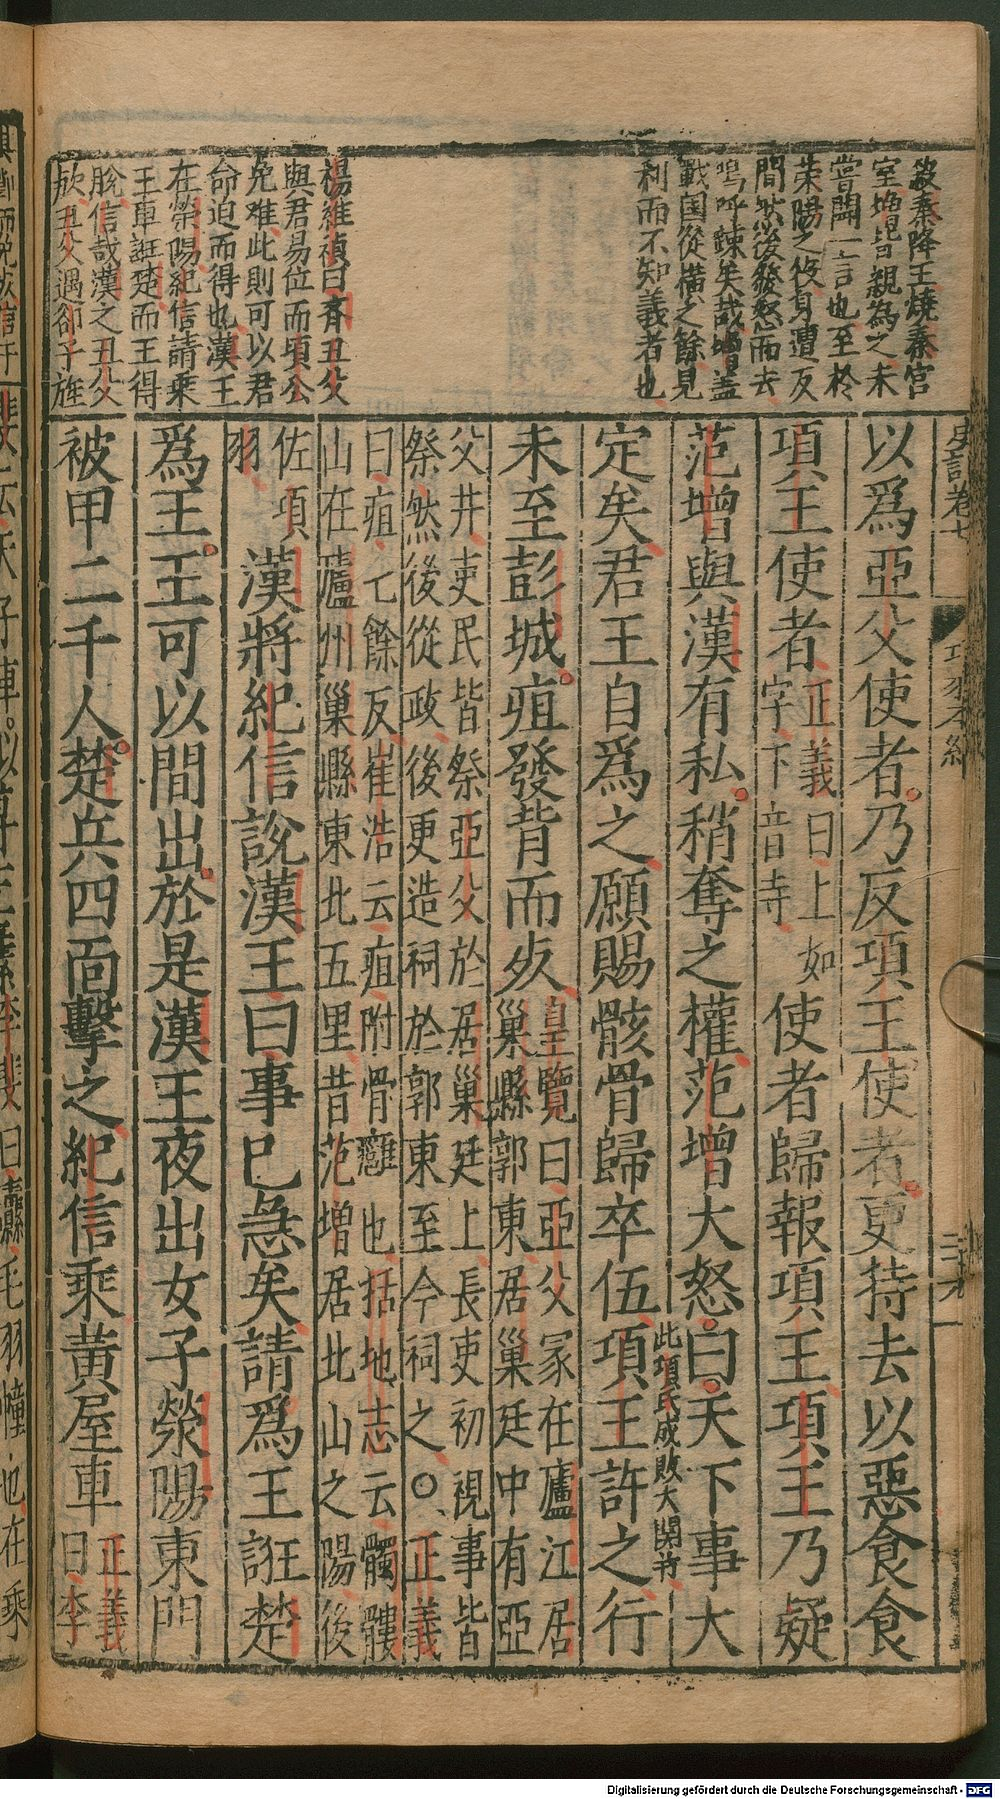 殺秦降王燒秦宮
室增皆親為之未
嘗聞一言也至於
荣陽之役身遭反
間然後發怒而去
嗚呼踈矣哉增盖
戰国從橫之餘見
利而不知義者也
楊維禎曰齊丑父
與君易位而頃公
免难此則可以君
命迫而得也漢王
在滎陽紀信請乘
王車誑楚而王得
脫信哉漢之丑父
歟丑父遇郤子旌
史記卷七
以爲亞父使者乃反項王使者更持去以惡食食
項王使者
正義曰上如
字下音寺
使者歸報項王項王乃疑
范增與漢有私稍奪之權范增大怒曰天下事大
此項氏成敗大関
定矣君王自爲之願賜骸骨歸卒伍項王許之行
未至彭城疽發背而死
皇覽曰亞父冢在廬江居
巢縣郭東居巢廷中有亞
父井吏民皆祭亞父於居巢廷上長吏初視事皆
祭然後從政後更造祠於郭東至今祠之〇正義
曰疽七餘反崔浩云疽附骨癰也括地志云髑髏
山在廬州巢縣東北五里昔范增居北山之陽後
佐項
羽
漢將紀信說漢王曰事已急矣請爲王誑楚
爲王王可以間出於是漢王夜出女子滎陽東門
被甲二千人楚兵四面擊之紀信乘黃屋車
正義
曰李
Digitalisierung gefördert durch die Deutsche Forschungsgemeinschaft - DFG